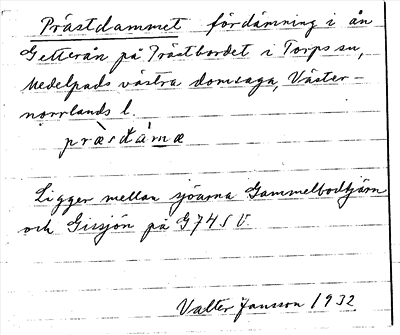 Prästdammet fördämning i ån
Getterån på Prästbordet i Torps sn,
Medelpads västra domsaga, Väster-
norrlands l.
præsdamæ
Ligger mellan sjöarna Gammelbodtjärn
och Gissjön på G74SV.
Valter Jansson 1932